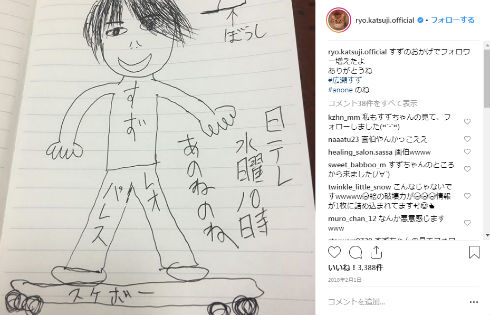 ぼうし
すず
日テレ
水曜10時
あのねのね
レオ
パレス
スケボー
ryo.katsuji.official フォローする
ryo.katsuji.official すずのおかげでフォロワ
ー増えたよ
ありがとうね
#広瀬すず
#anone のね
コメント38件をすべて表示
kzhn_mm 私もすずちゃんの見て、フ
ォローしました
naaatu23 画伯やんかっこええ
healing_salon.sassa 画伯wwww
sweet_babboo_m すずちゃんのところ
から来ました
twinkle_little_snow こんなじゃないで
すwwwww絵の破壊力が情報
が1枚に詰め込まれてます
muro_chan_12 なんか悪意感じます
www
いいね！3,388件
2018年2月1日
コメントを追加...